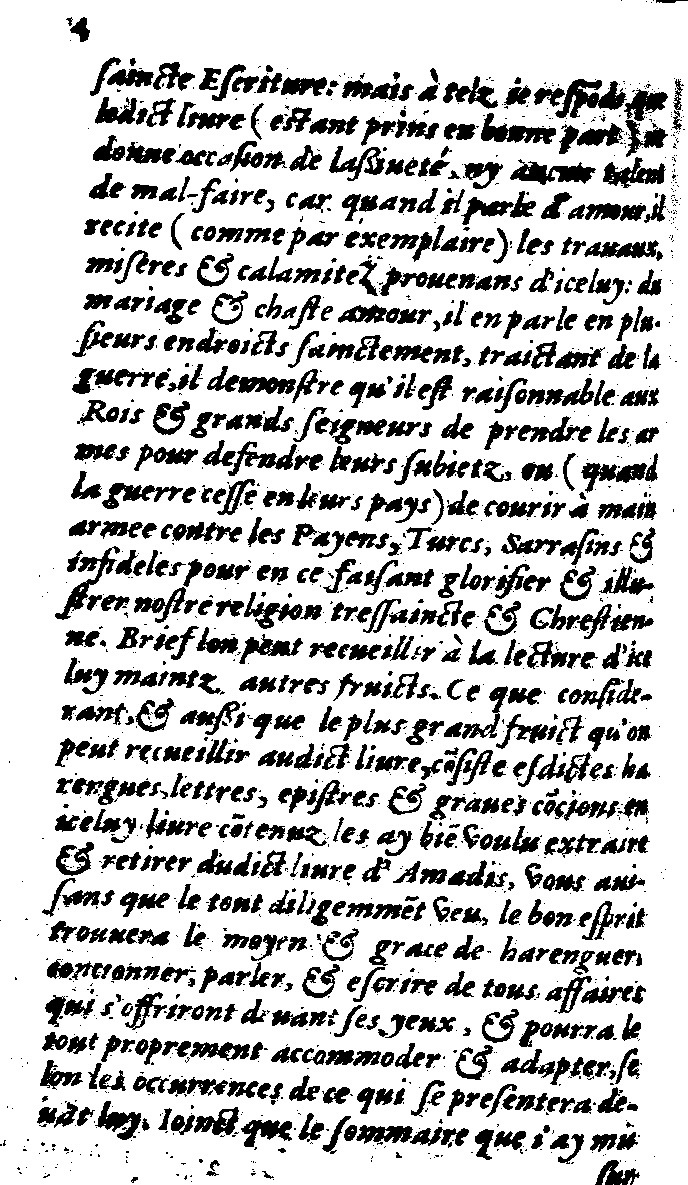 4
ſaincte Eſcriture: mais à telz ie reſpõds que
ledict liure ( eſtant prins en bonne part ) ne
donne occaſion de laſſiueté, ny aucun talent
de mal-faire, car quand il parle d'amour, il
recite ( comme par exemplaire) les trauaux,
miſeres & calamitez prouenans d'iceluy: du
mariage & chaſte amour, il en parle en plu-
ſieurs endroicts ſainctement, traictant de la
guerre, il demonſtre qu'il eſt raiſonnable aux
Rois & grands ſeigneurs de prendre les ar
mes pour defendre leurs ſubietz, ou ( quand
la guerre ceſſe en leurs pays) de courir à main
armee contre les Payens, Turcs, Sarraſins &
infideles pour en ce faiſant glorifier & illu-
ſtrer noſtre religion treſſaincte & Chreſtien-
ne. Brief lon peut recueillir à la lecture d'ice
luy maintz autres fruicts. Ce que conſide-
rant, & auſſi que le plus grand fruict qu'on
peut recueillir audict liure, cõſiſte eſdictes ha
rengues, lettres, epiſtres & graues cõcions en
iceluy liure cõtenuz les ay biẽ voulu extraire
& retirer dudict liure d'Amadis, vous aui-
ſans que le tout diligemmẽt veu, le bon eſprit
trouuera le moyen & grace de harenguer,
concionner, parler, & eſcrire de tous affaires
qui s'offriront deuant ſes yeux, & pourra le
tout proprement accommoder & adapter, ſe
lon les occurrences de ce qui ſe preſentera de-
uãt luy. Ioinct que le ſommaire que i'ay mis
ſur